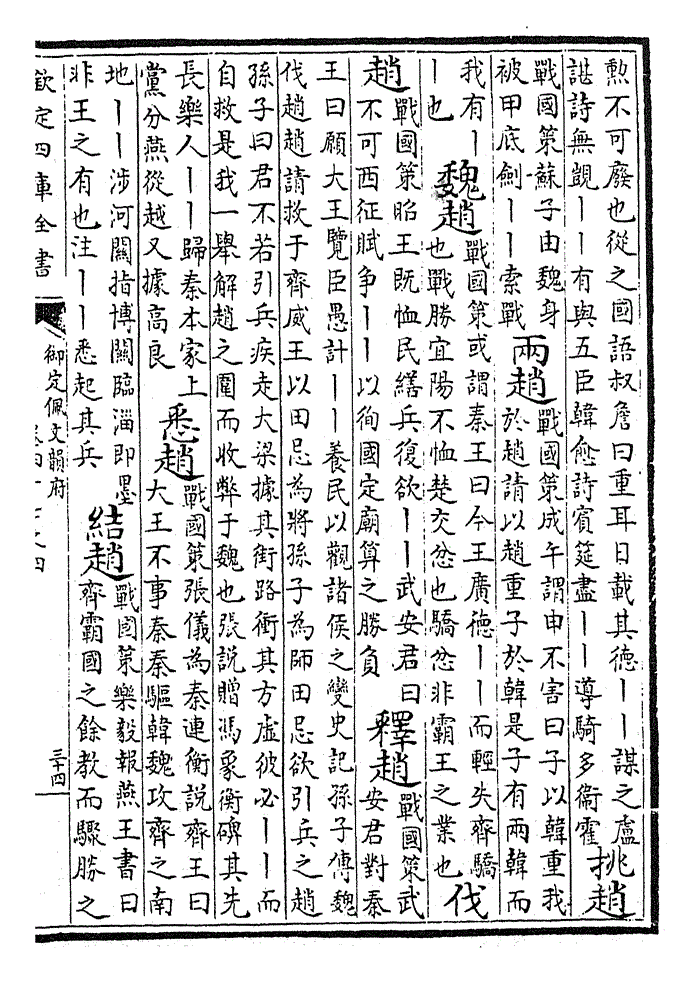 勲不可廢也從之國語叔詹曰重耳日載其德丨丨謀之盧
諶詩無覬丨丨有與五臣韓愈詩賓筵盡丨丨導騎多衙霍
挑趙
戰國策蘇子由魏身
被甲底劍丨丨索戰
兩趙
戰國策成午謂申不害曰子以韓重我
於趙請以趙重子於韓是子有兩韓而
我有丨
丨也
魏趙
戰國策或謂秦王曰今王廣德丨丨而輕失齊驕
也戰勝宜陽不恤楚交忿也驕忿非霸王之業也
伐
趙
戰國策昭王既恤民繕兵復欲丨丨武安君曰
不可西征賦争丨丨以徇國定廟算之勝負
釋趙
戰國策武
安君對秦
王曰願大王覽臣愚計丨丨養民以觀諸侯之變史記孫子傳魏
伐趙趙請救于齊威王以田忌為將孫子為師田忌欲引兵之趙
孫子曰君不若引兵疾走大梁據其街路衝其方虛彼必丨丨而
自救是我一舉解趙之圍而收弊于魏也張說贈馮象衡碑其先
長樂人丨丨歸秦本家上
黨分燕從越又據高良
悉趙
戰國策張儀為秦連衡說齊王曰
大王不事秦秦驅韓魏攻齊之南
地丨丨涉河關指博關臨淄即墨
非王之有也注丨丨悉起其兵
結趙
戰國策樂毅報燕王書曰
齊霸國之餘教而驟勝之
欽定四庫全書
御定佩文韻府
三十四